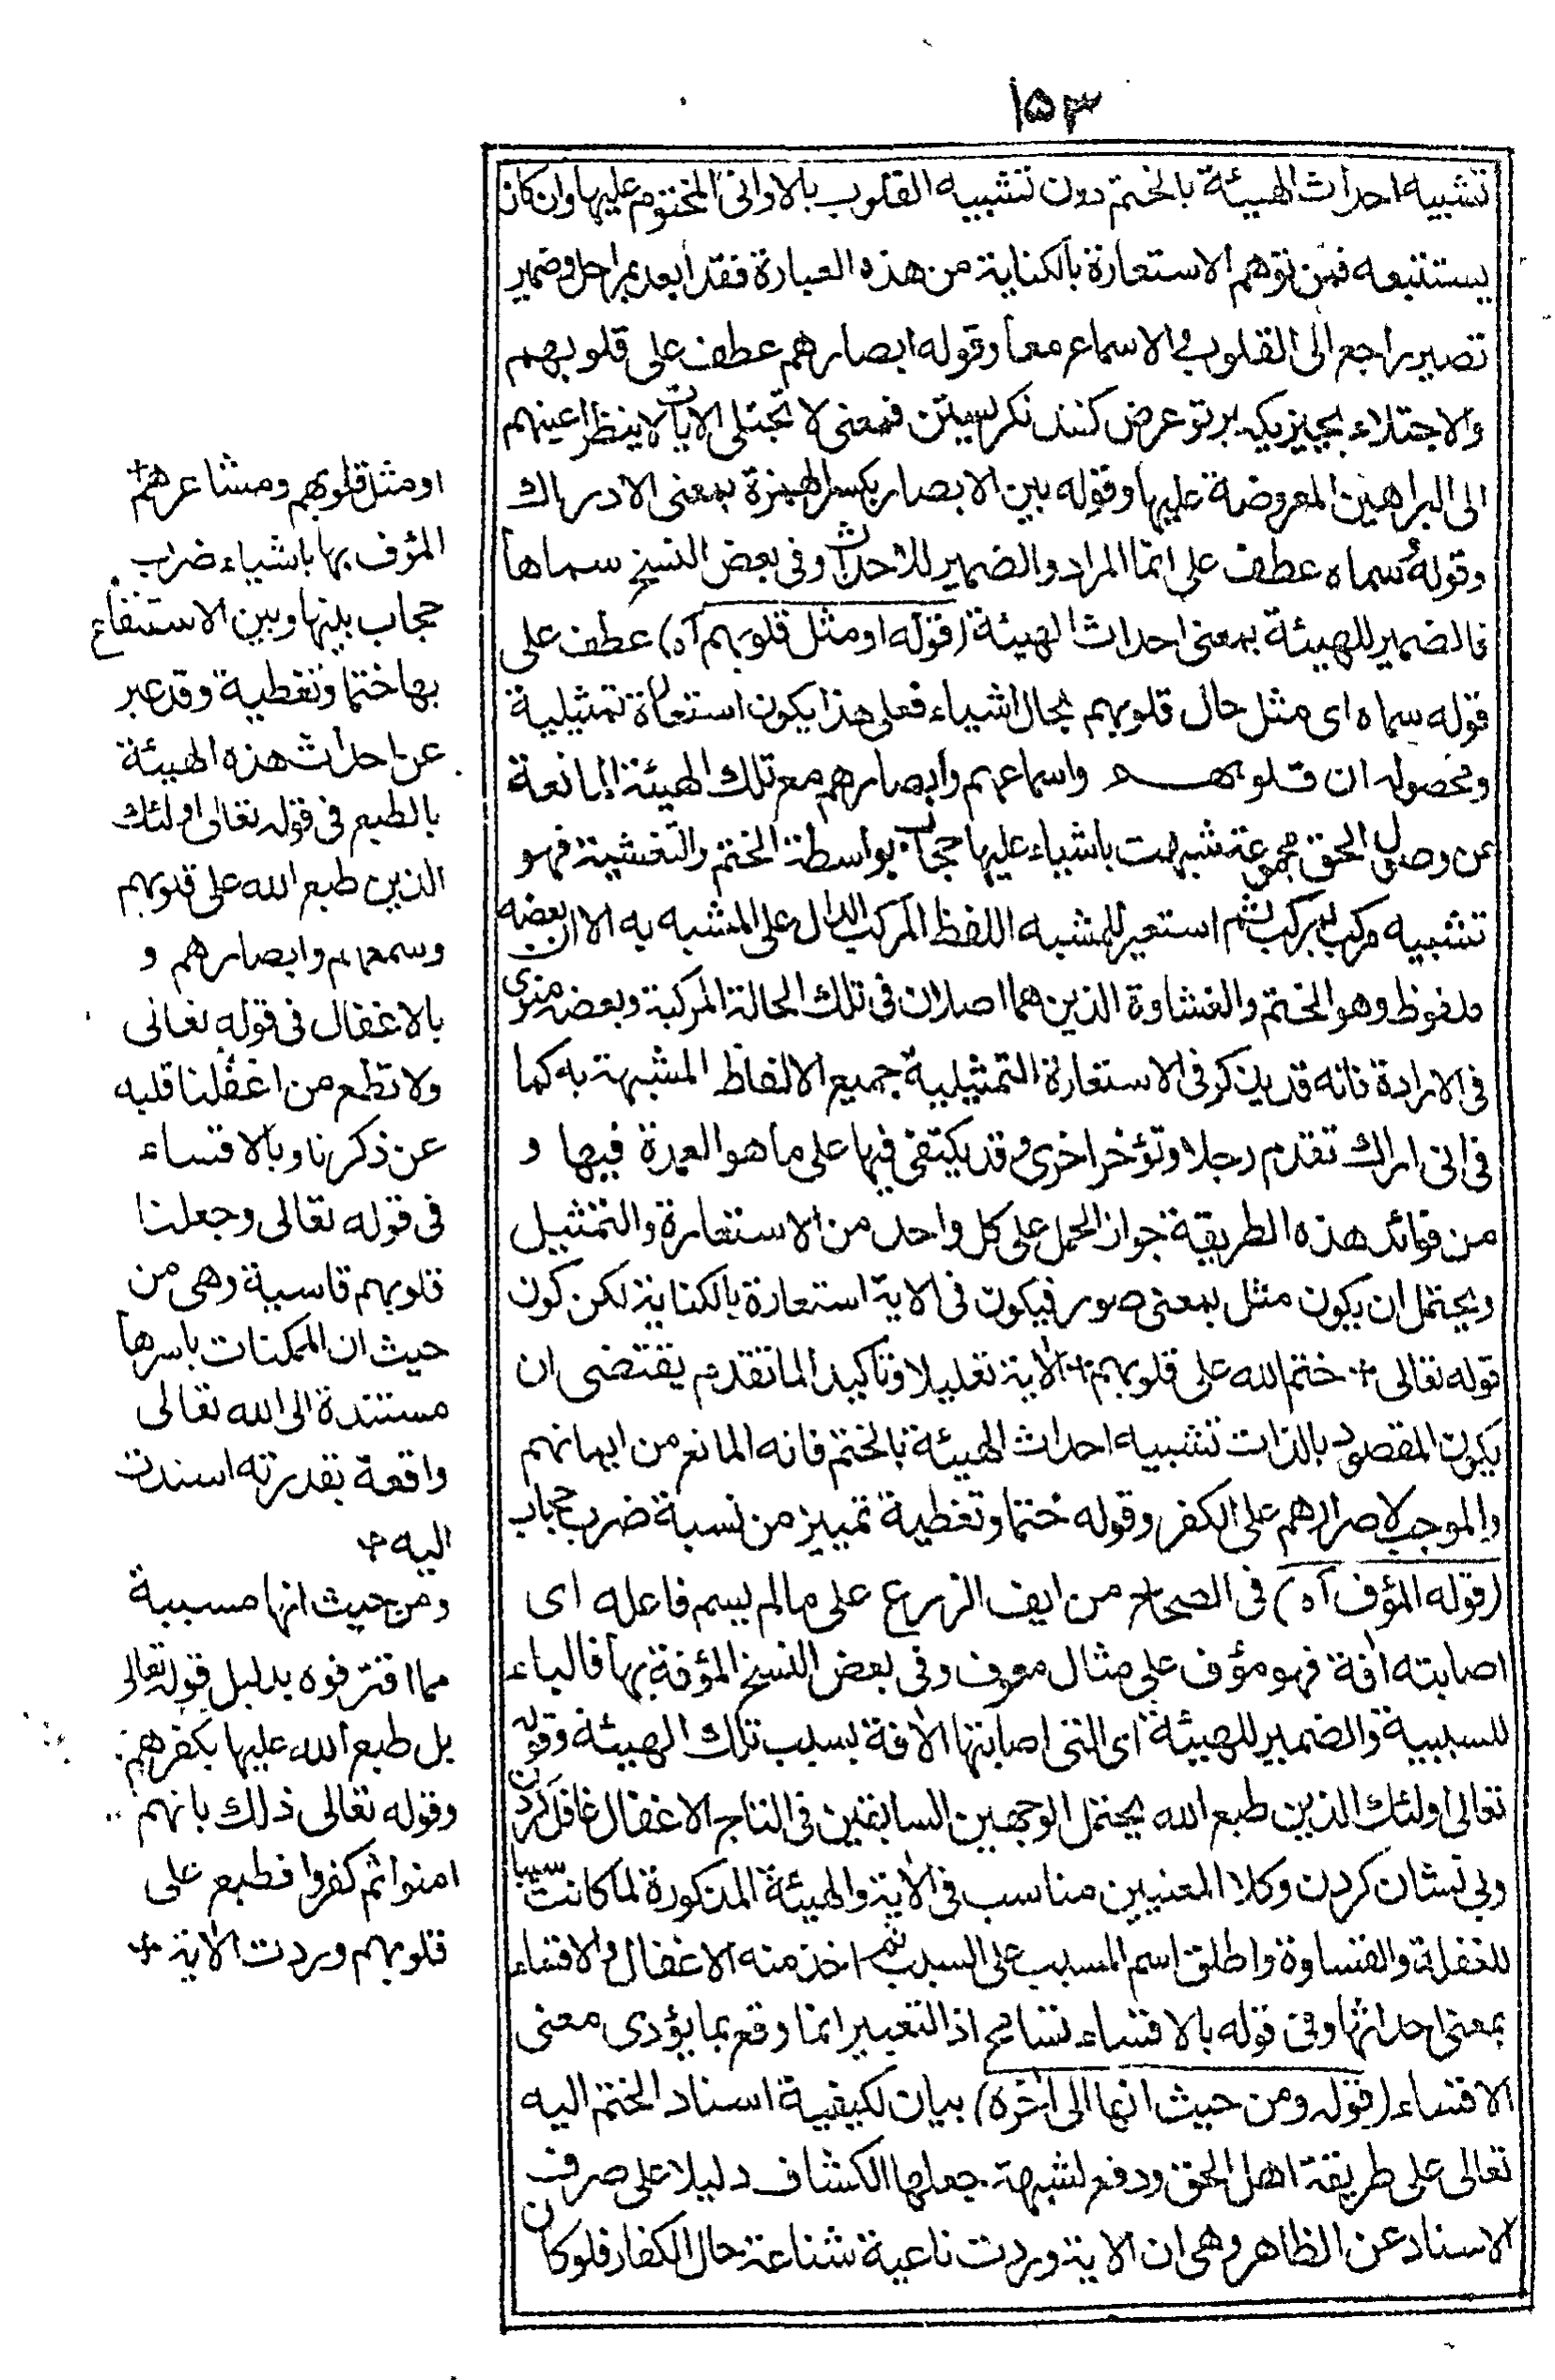 ١٥٣
تشبيه احداث الهيئة بالختم دون تشبيه القلوب بالاوانى المختوم عليها وان كان
يستتبعه فمن توهم الاستعارة بالكناية من هذه العبارة فقد ابعد بمراحل وضمير
تصير راجع الى القلوب والاسماع معا وقوله ابصارهم عطف على قلوبهم
والاجتلاء بچيزيكه برتو عرض كنند نكريستن فمعنى لا تجتلى الايات لا ينظر اعينهم
الى البراهين المعروضة عليها وقوله بين الابصار بكسر الهمزة بمعنى الادراك
وقوله وسماه عطف على انما المراد والضمير للاحداث وفى بعض النسخ سماها
فالضمير للهيئة بمعنى احداث الهيئة (قوله او مثل قلوبهم آه) عطف على
قوله سماه اى مثل حال قلوبهم بحال اشياء فعلى هذا يكون استعارة تمثيلية
ومحصوله ان قلوبهم واسماعهم وابصارهم مع تلك الهيئة المانعة
عن وصول الحق مجموعة شبهت باشياء عليها حجاب بواسطة الختم والتغشية فهو
تشبيه مركب بمركب ثم استعير للمشبه اللفظ المركب الدال على المشبه به الا ان بعضه
ملفوظ وهو الختم والغشاوة الذين هما اصلان فى تلك الحالة المركبة وبعضه منوى
فى الارادة فانه قد يذكر فى الاستعارة التمثيلية جميع الالفاظ المشبهة به كما
فى انى اراك تقدم رجلا وتؤخر اخرى وقد يكتفى فيها على ما هو العمدة فيها و
من فوائد هذه الطريقة جواز الحمل على كل واحد من الاستعارة والتمثيل
ويحتمل ان يكون مثل بمعنى صور فيكون فى الاية استعارة بالكناية لكن كون
قوله تعالى + ختم الله على قلوبهم + الاية تعليلا وتاكيدا لما تقدم يقتضى ان
يكون المقصود بالذات تشبيه احداث الهيئة بالختم فانه المانع من ايمانهم
والموجب لاصرارهم على الكفر وقوله ختما وتغطية تمييز من نسبة ضرب حجاب
(قوله المؤف آه) فى الصحاح من ايف الزرع على مالم يسم فاعله اى
اصابته افة فهو مؤف على مثال معوف وفى بعض النسخ المؤفة بها فالباء
للسببية والضمير للهيئة اى التى اصابتها الافة بسبب تلك الهيئة وقوله
تعالى اولئك الذين طبع الله يحتمل الوجهين السابقين فى التاج الاغفال غافل كردن
وبى نشان كردن وكلا المعنيين مناسب فى الاية والهيئة المذكورة لما كانت سببا
للغفلة والقساوة واطلق اسم المسبب على السبب ثم اخذ منه الاغفال والاقساء
بمعنى احداثها وفى قوله بالاقساء تسامح اذ التعبير انما وقع بما يؤدى معنى
الاقساء (قوله ومن حيث انها الى اخره) بيان لكيفية اسناد الختم اليه
تعالى على طريقة اهل الحق ودفع لشبهة جعلها الكشاف دليلا على صرف
الاسناد عن الظاهر وهى ان الاية وردت ناعية شناعة حال الكفار فلو كان
او مثل قلوبهم ومشاعرهم +
المؤف بها باشياء ضرب
حجاب بينها وبين الاستنفاع
بها ختما وتغطية وقد عبر
عن احداث هذه الهيئة
بالطبع فى قوله تعالى اولئك
الذين طبع الله على قلوبهم
وسمعهم وابصارهم و
بالاغفال فى قوله تعالى
ولا تطع من اغفلنا قلبه
عن ذكرنا وبالاقساء
فى قوله تعالى وجعلنا
قلوبهم قاسية وهى من
حيث ان الممكنات باسرها
مستندة الى الله تعالى
واقعة بقدرته اسندت
اليه +
ومن حيث انها مسببة
مما اقترفوه بدليل قوله تعالى
بل طبع الله عليها بكفرهم
وقوله تعالى ذلك بانهم
امنوا ثم كفروا فطبع على
قلوبهم وردت الاية +